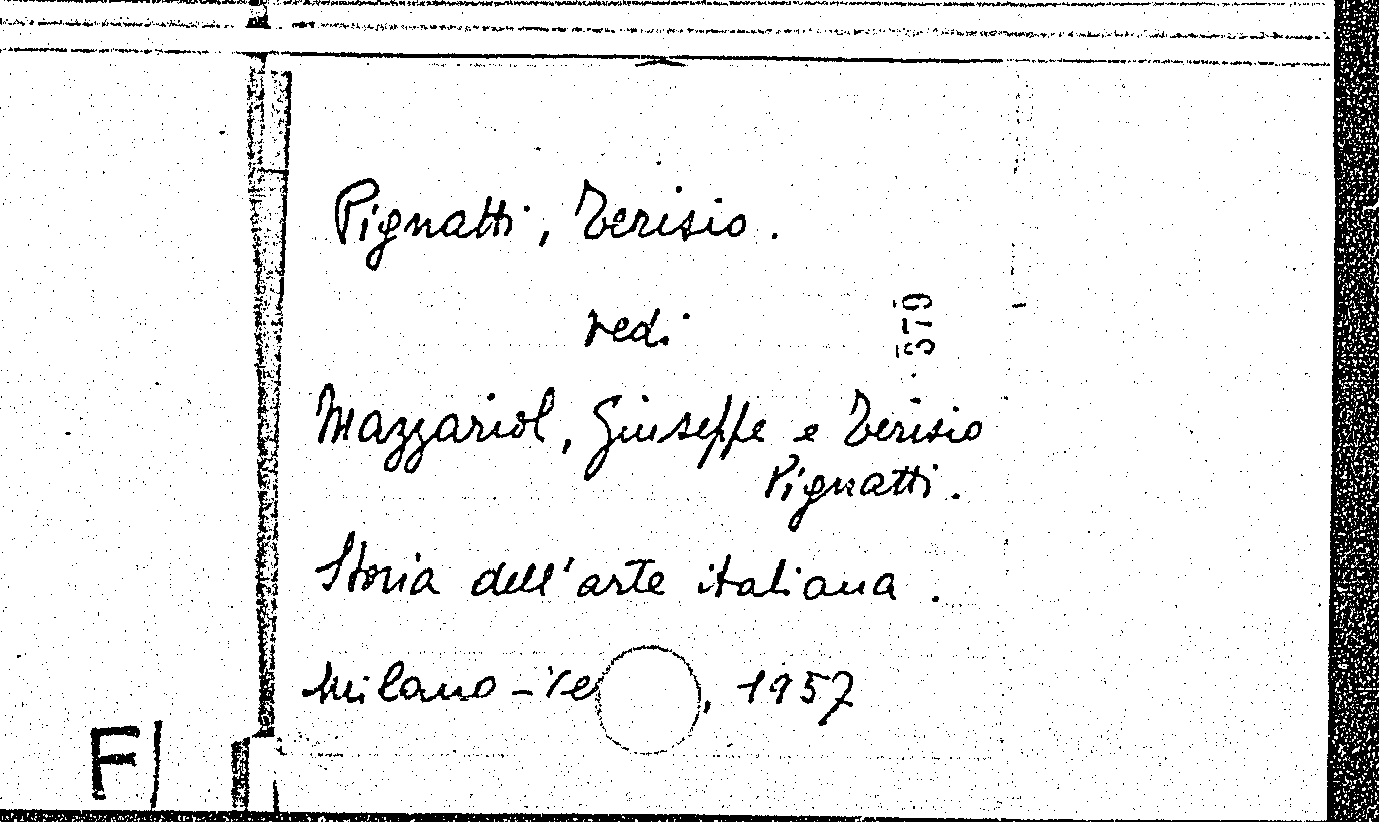 Pignatti, Terisio.
vedi
579
Mazzariol, Giuseppe e Terisio
Pignatti.
Storia dell'arte italiana.
Milano - Ve , 1957
F)